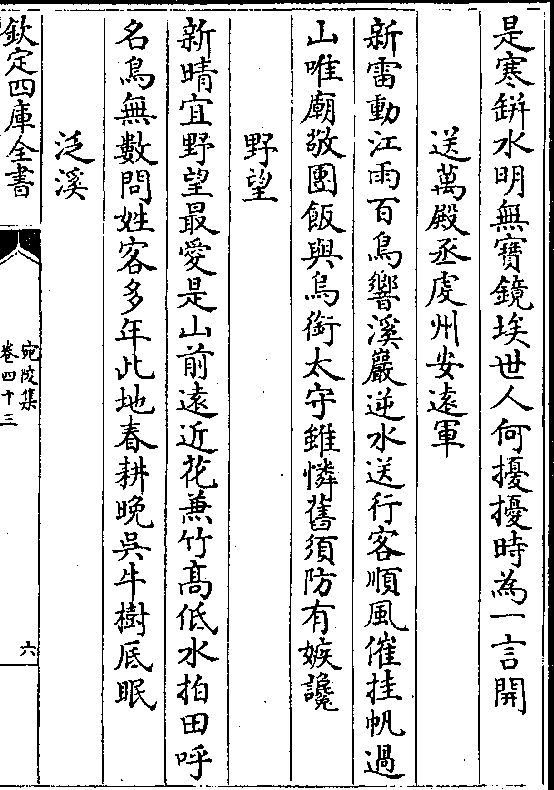 是寒缾水明無寶鏡埃世人何擾擾時為一言開
送萬殿丞䖍州安遠軍
新雷動江雨百鳥響溪巖逆水送行客順風催挂帆過
山唯廟敬團飯與烏銜太守雖憐舊須防有嫉讒
野望
新晴宜野望最愛是山前遠近花兼竹髙低水拍田呼
名鳥無數問姓客多年此地春耕晚吳牛樹底眠
泛溪
欽定四庫全書
宛陵集
卷四十三
六